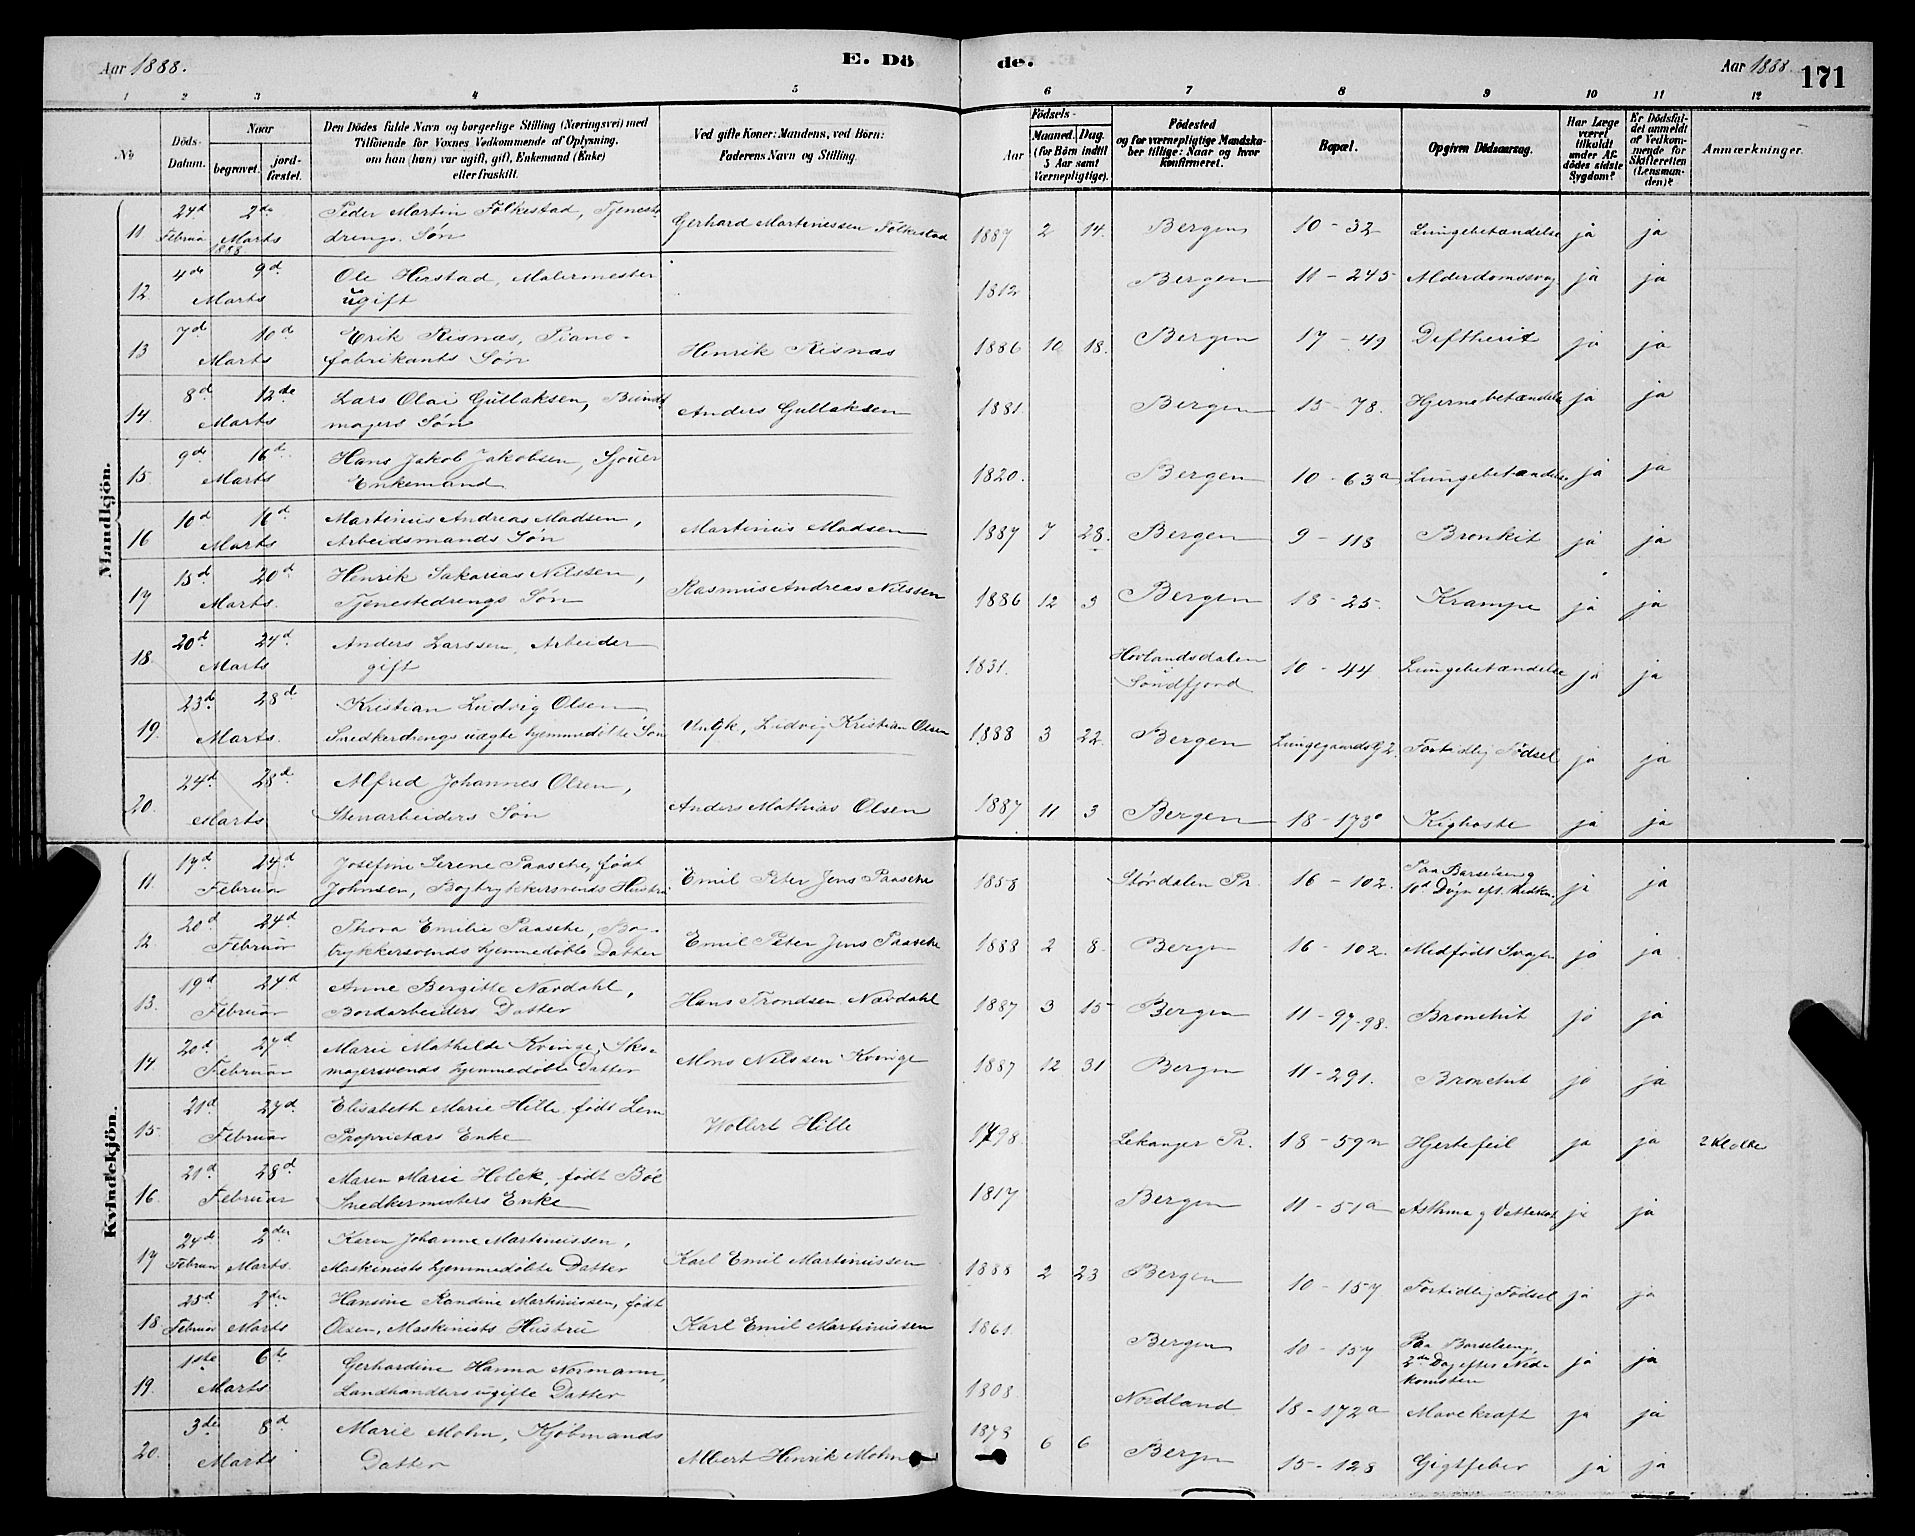 Aar 1888.
E. Döde.
Aar 1888.
171
1 2 3 4 5 6 7 8 9 10 11 12
No
Döds-Datum.
Naar
begravet.
jord-fæstet.
Den Dödes fulde Navn og borgerlige Stilling (Næringsvei) med
Tilföiende for Voxnes Vedkommende af Oplysning,
om han (hun) var ugift, gift, Enkemand (Enke)
eller fraskilt.
Ved gifte Koner: Mandens, ved Börn:
Faderens Navn og Stilling.
Födsels-
Aar
Maaned. Dag.
(for Börn indtil
5 Aar samt
Værnepligtige).
Födested
og for værnepligtige Mandska-
ber tillige: Naar og hvor
konfirmeret.
Bopæl.
Opgiven Dödsaarsag.
Har Læge
været
tilkaldt
under Af-
dödes sidste
Sygdom?
Er Dödsfal-
det anmeldt
af Vedkom-
mende for
Skifteretten
(Lensman-
den)?
Anmærkninger.
Mandkjön.
11 24d Februar 2de Marts 1888 Peder Martin Folkestad, Tjeneste-
drengs Søn Gerhard Martinessen Folkestad 1887 2 14. Bergen 10 - 32 Lungebetændelse ja ja
12 4de 9d Marts Ole Herstad, Malermester
ugift 1812 Bergen 11 - 245 Alderdomssvag ja ja
13 7de 10de Marts Erik Risnæs, Piano-
fabrikants Søn Henrik Risnæs 1886 10 18. Bergen 17 - 49 Deftherit ja ja
14 8d 12de Marts Lars Olai Gullaksen, Bundt
magers Søn Anders Gullaksen 1881. Bergen 15 - 78. Hjernebetændelse ja ja
15 9de 16de Marts Hans Jakob Jakobsen, Sjouer
Enkemand 1820. Bergen 10 - 63a Lungebetændelse ja ja
16 10d 16d Marts Martinus Andreas Madsen,
Arbeidsmands Søn Martinus Madsen 1887 7 28. Bergen 9 - 118 Bronkit ja ja
17 15d 20d Marts. Henrik Sakarias Nilssen,
Tjenestedrengs Søn Rasmus Andreas Nilssen 1886 12 3 Bergen 18 - 25. Krampe ja ja
18. 20d 24d Marts Anders Larssen, Arbeider
gift 1831. Hovlandsdalen
Søndfjord 10 - 44 Lungebetændelse ja ja
19. 23de 28d Marts. Kristian Ludvig Olsen
Snedkerdrengs uægte hjemmedøbte Søn Ungk, Ludvig Kristian Olsen 1888 3 22 Bergen Lungegaardsg 2. Fortidlig Fødsel ja ja
20. 24d 28d Marts Alfred Johannes Olsen,
Stenarbeiders Søn Anders Mathias Olsen 1887 11 3 Bergen 18 - 173 Kighoste ja ja
Kvindekjön.
11. 17d 24d Februar Josefine Serene Paasche, født
Johnsen, Bogtrykkersvends Hustru Emil Peter Jens Paasche 1858 Størdalen Pr. 16 - 102. Paa Barselseng
10d Døgn eft. Nedkn. ja ja
12. 20d 24d Februar Thora Emilie Paasche, Bog-
trykkersvends hjemmedøbte Datter Emil Peter Jens Paasche 1888 2 8. Bergen 16 - 102. Medfødt Svagh ja ja
13. 19d 24d Februar Anne Bergitte Nævdahl,
Bordarbeiders Datter Hans Trondsen Nævdahl 1887 3 15 Bergen 11 - 97-98. Bronchit ja ja
14. 20d 27d Februar Marie Mathilde Kvinge, Sko-
magersvends hjemmedøbte Datter Mons Nilssen Kvinge 1887 12 31 Bergen 11 - 291. Bronchit ja ja
15. 21d 27d Februar Elisabeth Marie Hille, født Lem
Proprietærs Enke Wollert Hille 1798. Lekanger Pr. 18 - 59n Hjertefeil ja ja 2 Klokke
16. 21d 28d Februar Maren Marie Holck, født Böe
Snedkermesters Enke 1817 Bergen 11 - 51a Asthma g Vattersot ja ja
17 24de Februar 2den Marts. Karen Johanne Martinussen,
Maskinists hjemmedøbte Datter Karl Emil Martinussen 1888 2 23 Bergen 10 - 157 Fortidlig Fødsel ja ja
18 25d Februar 2den Marts Hansine Randine Martinussen, født
Olsen, Maskinists Hustru Karl Emil Martinussen 1861. Bergen 10 - 157 Paa Barselseng,
2den Dag efter Ned-
komsten ja ja
19. 1ste 6te Marts Gerhardine Hanna Normann,
Landhandlers ugifte Datter 1808. Nordland 18 - 172a Mavekræft ja ja
20. 3die 8d Marts Marie Mohn, Kjøbmands
Datter Albert Henrik Mohn 1873 6 6 Bergen 15 - 128 Gigtfeber ja ja